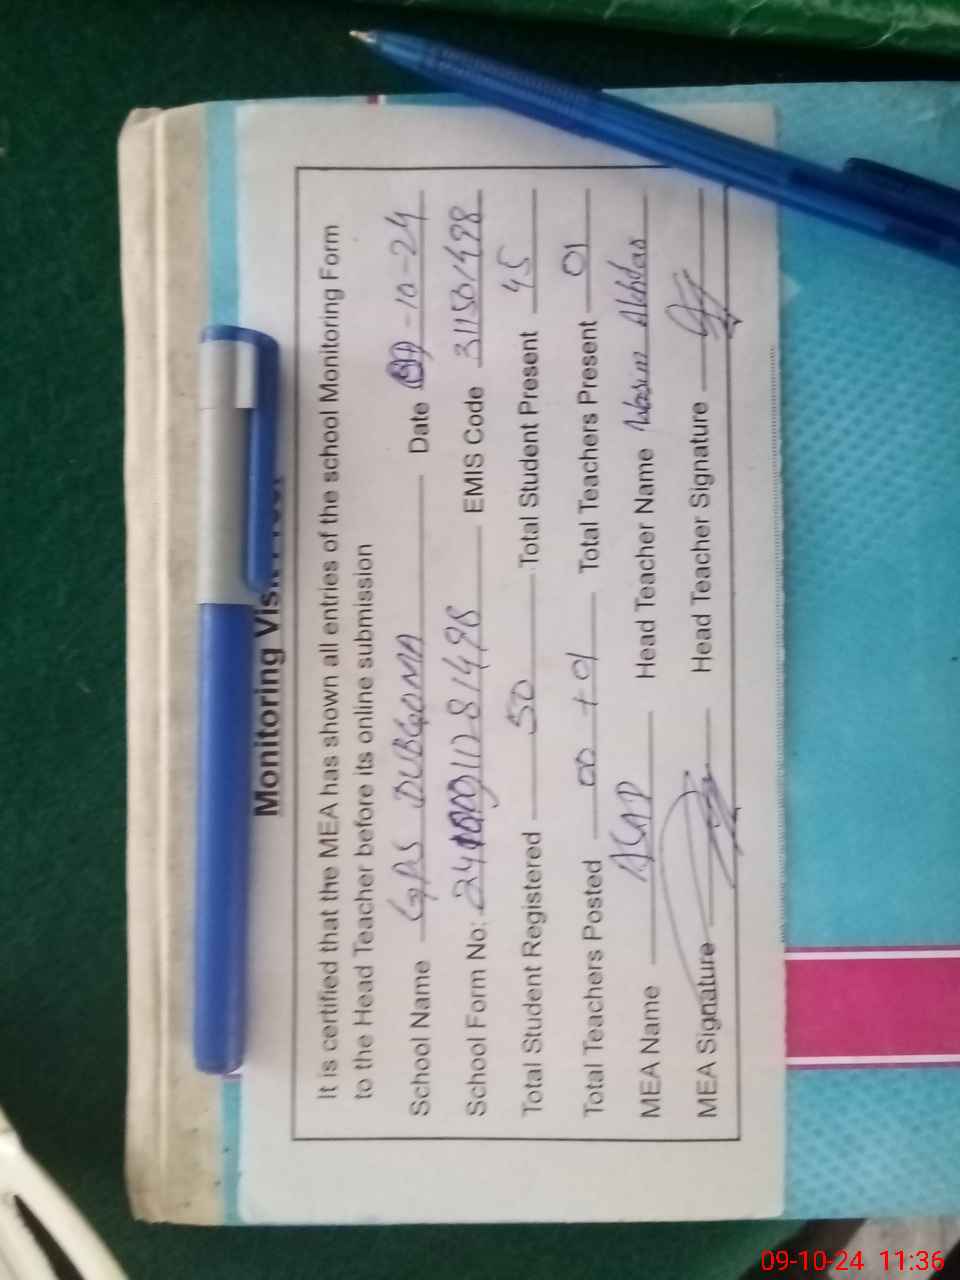 Monitoring Visit
It is certified that the MEA has shown all entries of the school Monitoring Form
to the Head Teacher before its online submission
School Name GPS DUBGOMA Date -10-24
School Form No: EMIS Code 311501498
Total Student Registered 50 Total Student Present 45
Total Teachers Posted 00 + 01 Total Teachers Present 01
MEA Name ASAD Head Teacher Name Wasim Akhdar
MEA Signature Head Teacher Signature
09-10-24 11:36